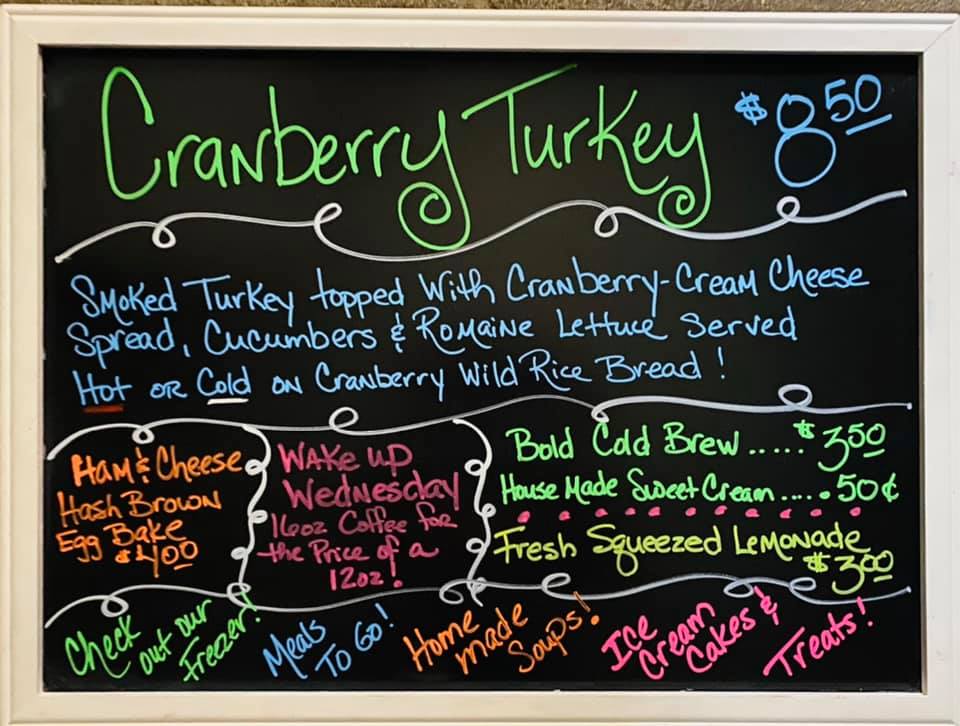 Cranberry Turkey $8.50
Smoked Turkey topped with Cranberry-Cream Cheese
Spread, Cucumbers & Romaine Lettuce Served
Hot or Cold on Cranberry Wild Rice Bread!
Ham & Cheese
Hash Brown
Egg Bake
$4.00
Wake up
Wednesday
16oz Coffee for
the Price of a
12oz!
Bold Cold Brew..... $3.50
House Made Sweet Cream..... 50¢
Fresh Squeezed Lemonade
$3.00
Check
out our
Freezer!
Meals
To Go!
Home
made
Soups!
Ice
Cream
Cakes &
Treats!